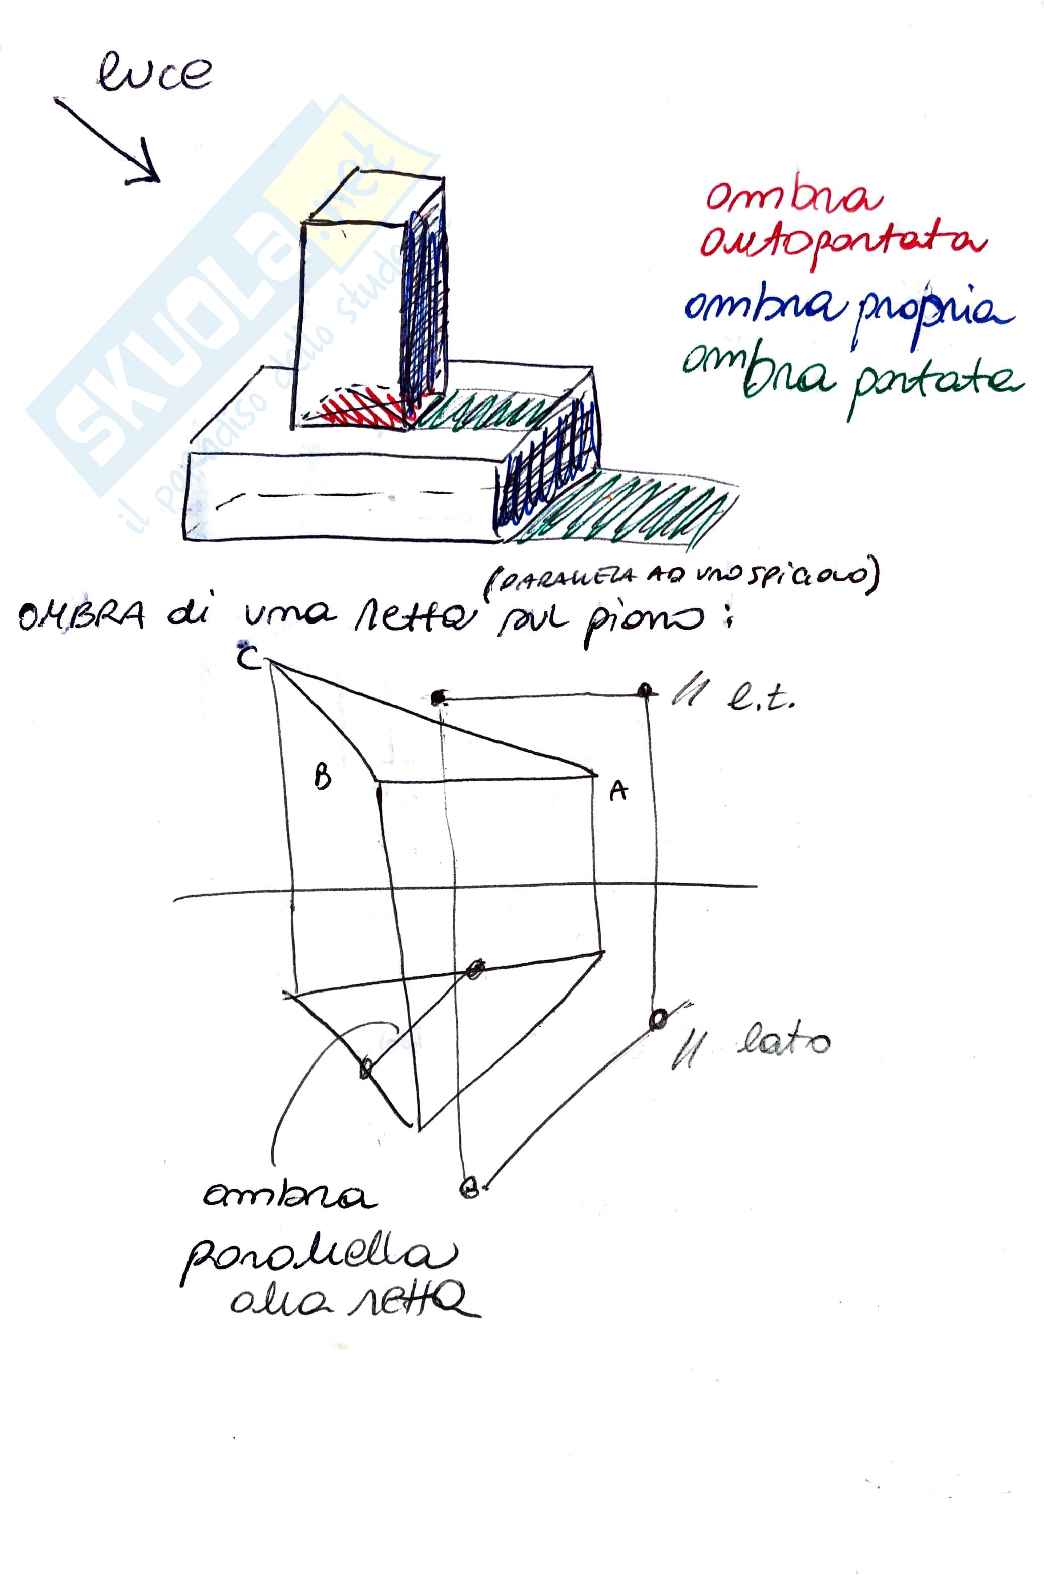 luce
SKUOLA.net
il paradiso dello stude
ombra
autoportata
ombra propria
ombra portata
(PARALLELA AD UNO SPIGOLO)
OMBRA di una retta sul piano:
C
// l.t.
B
A
// lato
ombra
parallella
alla retta